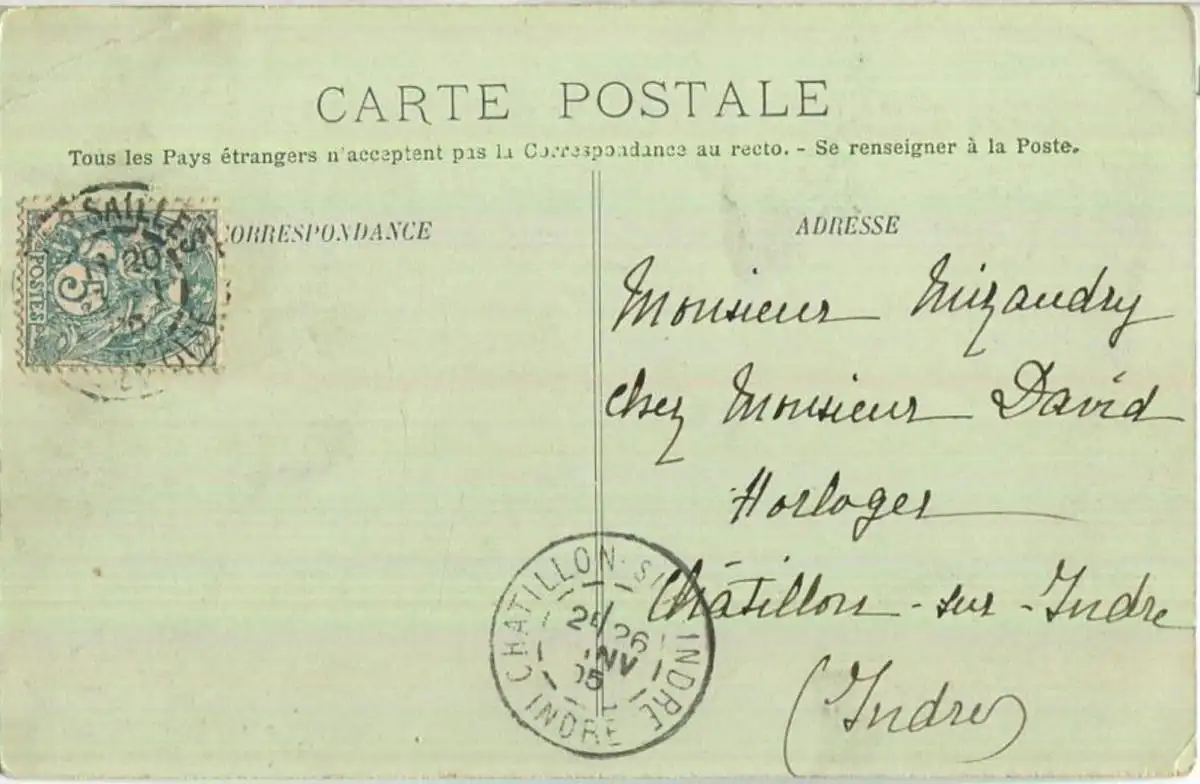 CARTE POSTALE
Tous les Pays étrangers n'acceptent pas la Correspondance au recto. - Se renseigner à la Poste.
CORRESPONDANCE
ADRESSE
POSTES
5
Monsieur Mizandry
chez Monsieur David
Horloger
Châtillon - sur - Indre
(Indre)
CHATILLON - S
INDRE
INDRE
26
NV
05